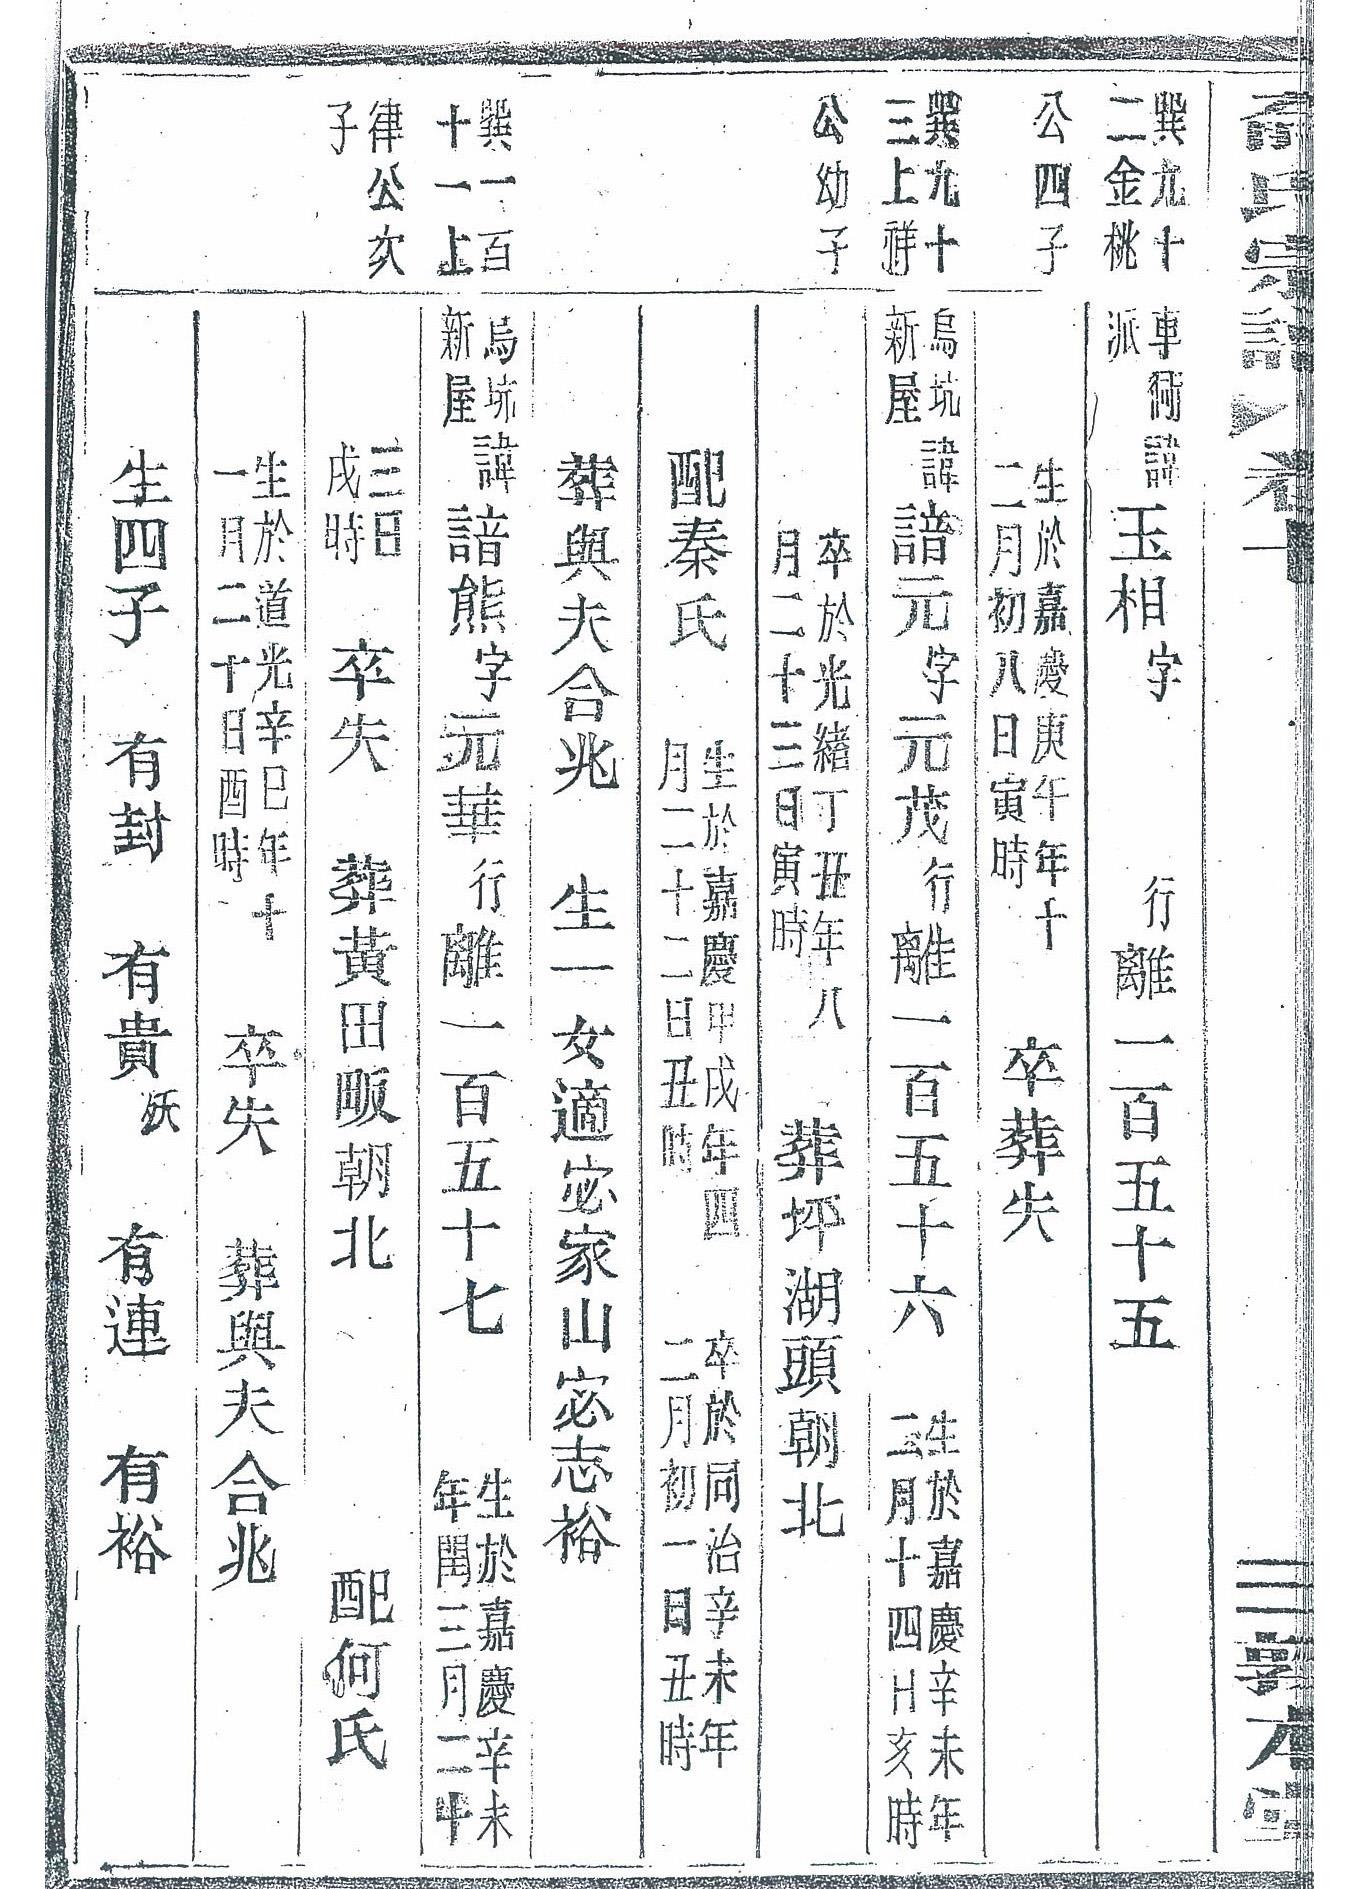 氏宗譜 卷十
三
巽九十
二金桃
公四子
車衕
派
諱玉相字 行離一百五十五
生於嘉慶庚午年十
二月初八日寅時
卒葬失
巽九十
三上祥
公幼子
烏坑
新屋
諱諳元字元茂行離一百五十六
生於嘉慶辛未年
二月十四日亥時
卒於光緒丁丑年八
月二十三日寅時
葬坪湖頭朝北
配秦氏
生於嘉慶甲戌年四
月二十二日丑時
卒於同治辛未年
二月初一日丑時
葬與夫合兆 生一女適宓家山宓志裕
巽一百
十一上
律公次
子
烏坑
新屋
諱諳熊字元華行離一百五十七
生於嘉慶辛未
年閏三月二十
三日
戌時
卒失 葬黃田畈朝北 配何氏
生於道光辛巳年十
一月二十日酉時
卒失 葬與夫合兆
生四子 有封 有貴殀 有連 有裕